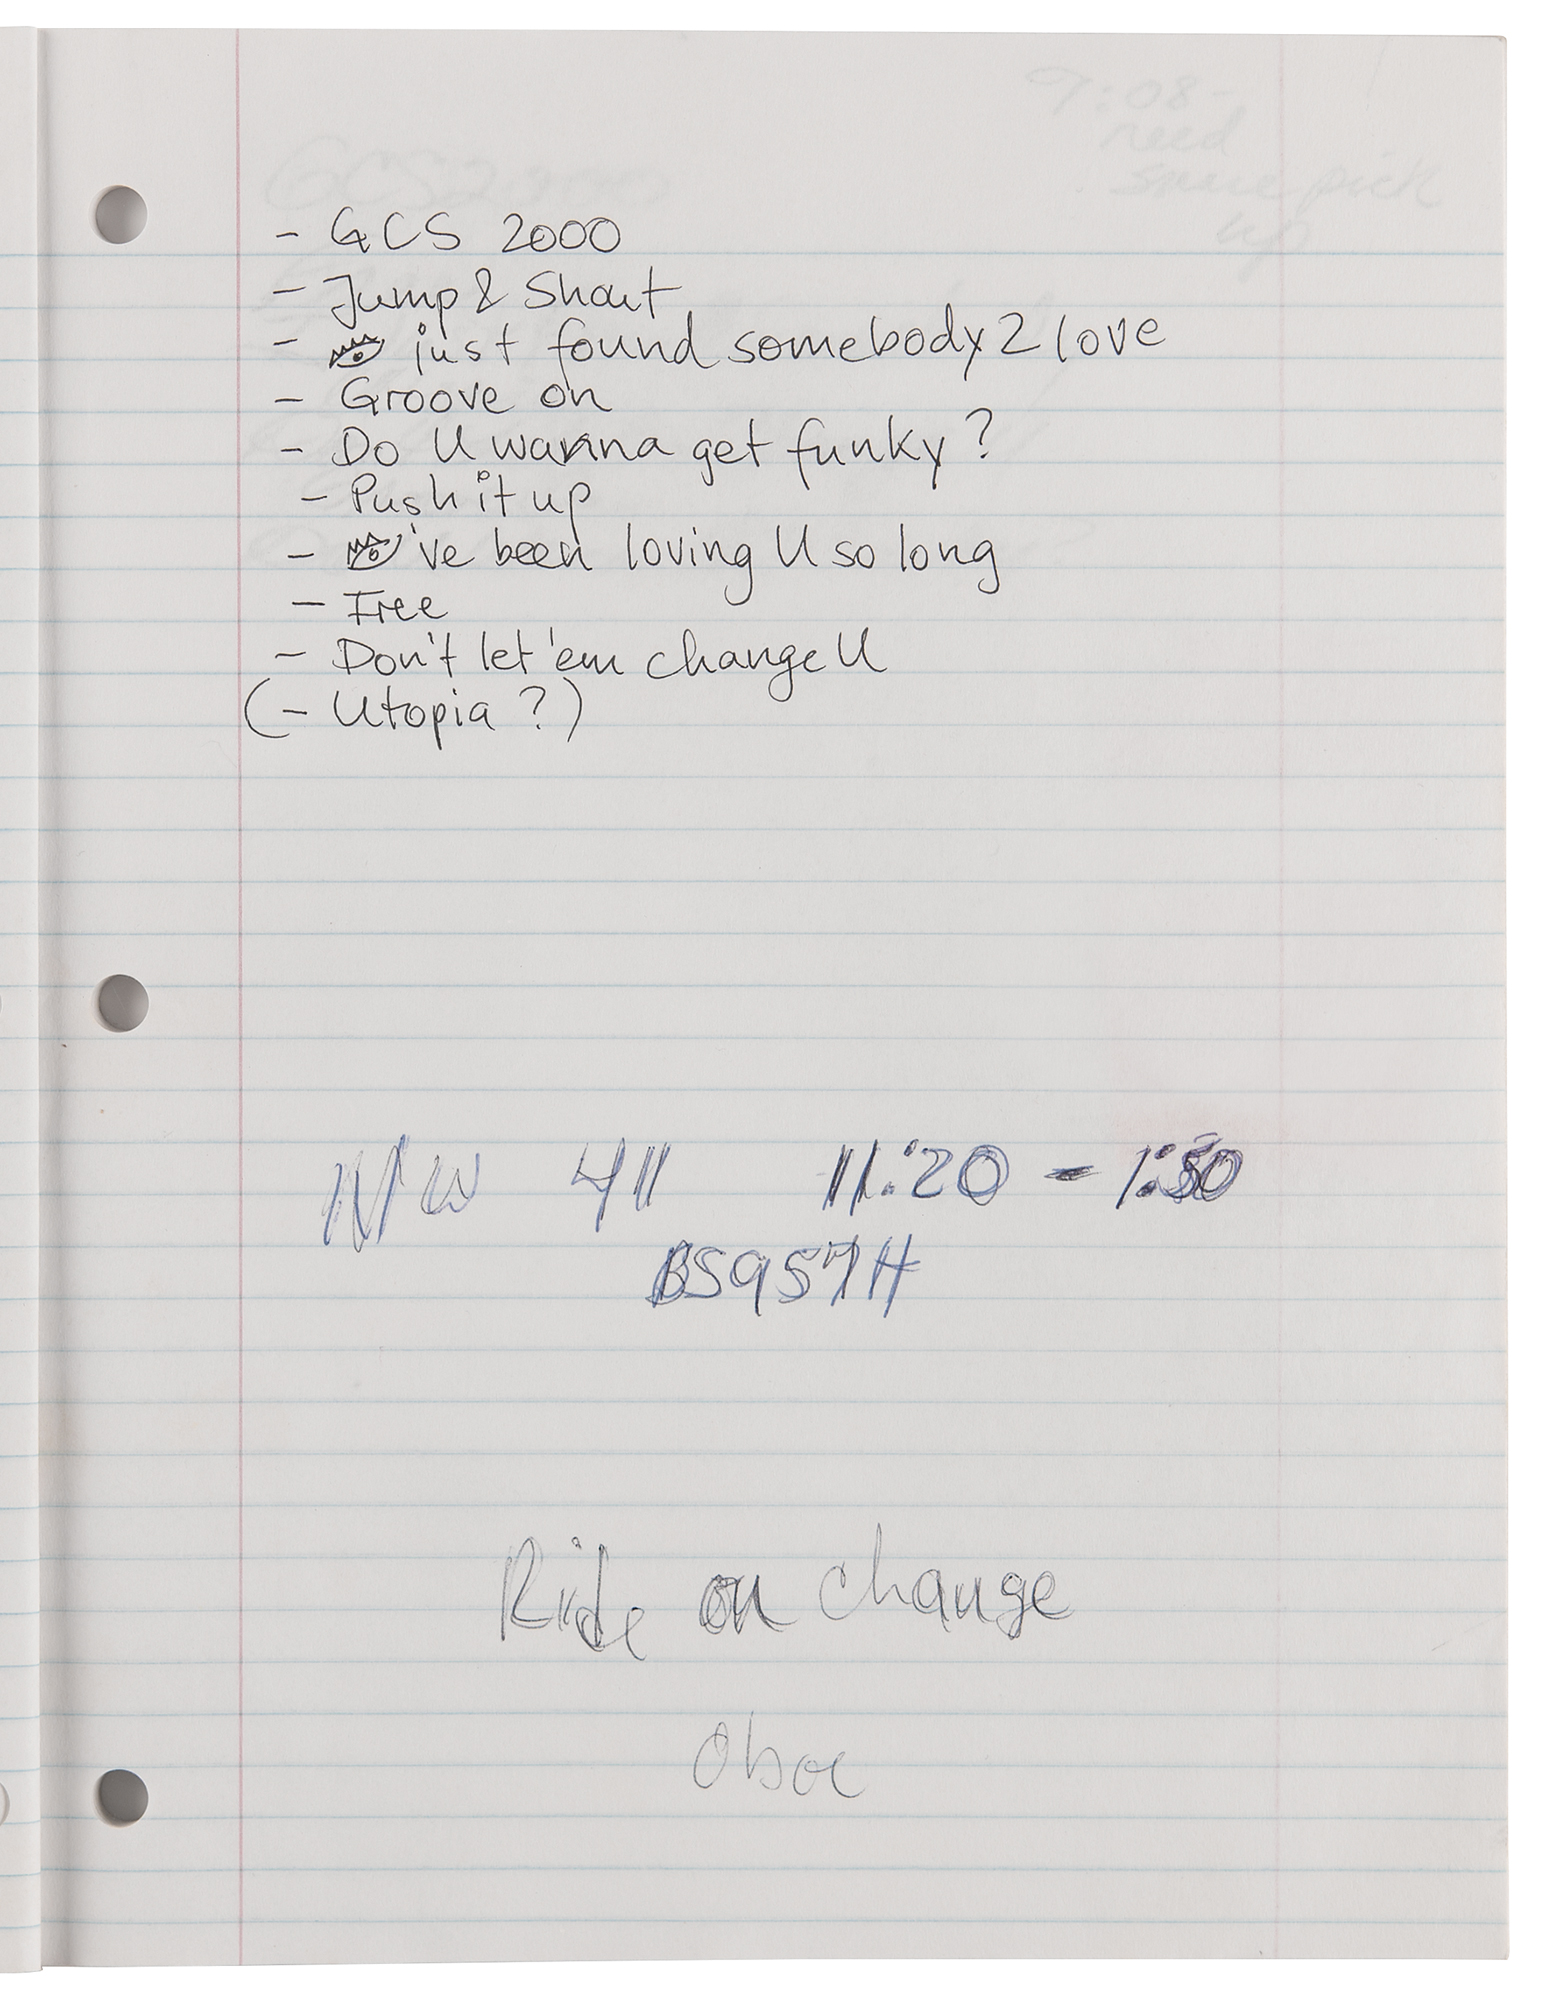 9:08-
need
some pick
up
GCS2000
- GCS 2000
- Jump & Shout
- 👁 just found somebody 2 love
- Groove on
- Do U wanna get funky?
- Push it up
- 👁've been loving U so long
- Free
- Don't let 'em change U
(- Utopia?)
NW 411 11:20 - 1:30
BS957H
Ride on change
Oboe